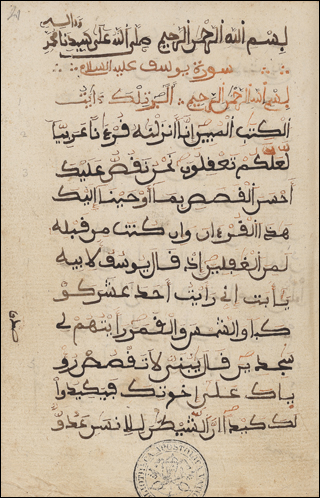 بسم الله الرحمن الرحيم صلى الله على سيدنا محمد
وءاله
سورة يوسف عليه السلام
بسم الله الرحمن الرحيم الر تلك ءايت
الكتب المبين انا انزلنه قرءنا عربيا
لعلكم تعقلون نحن نقص عليك
احسن القصص بما اوحينا اليك
هذا القرءان وان كنت من قبله
لمن الغفلين اذ قال يوسف لابيه
يابت اني رايت احد عشر كو
كبا والشمس والقمر رايتهم لي
سجدين قال يبني لا تقصص رء
ياك على اخوتك فيكيدوا
لك كيدا ان الشيطن للانسن عدو